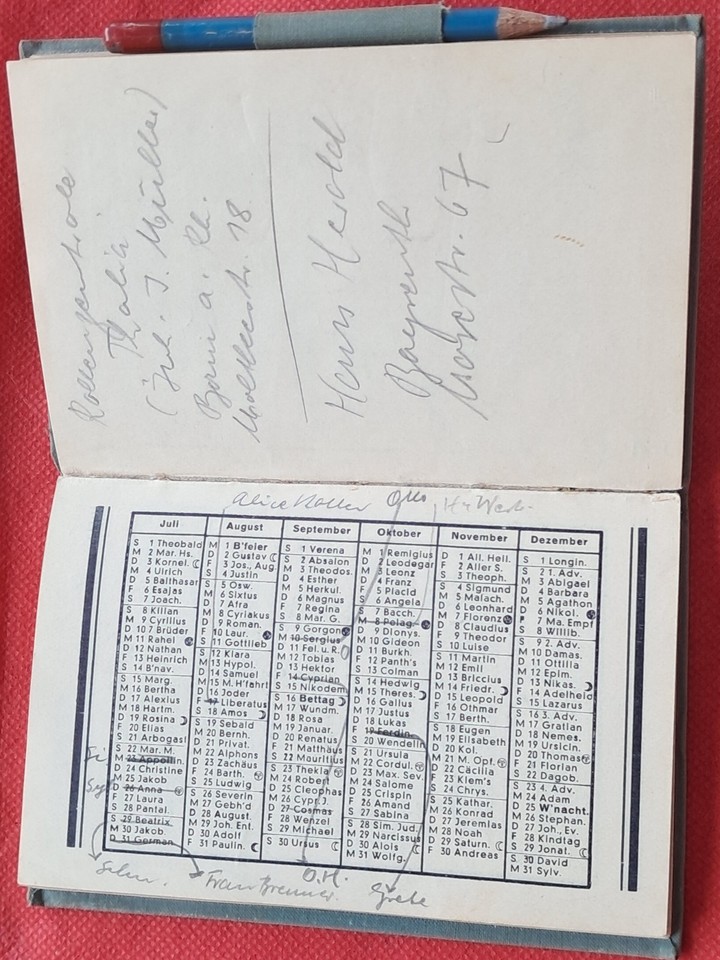 Thalia
J. Müller)
Bonn a. Rh.
Moltkestr. 18
Hans Herold
Bayreuth
67
Alice
Juli
S 1 Theobald
M 2 Mar. Hs.
D 3 Kornel.
M 4 Ulrich
D 5 Balthasar
F 6 Esajas
S 7 Joach.
S 8 Kilian
M 9 Cyrillus
D 10 7 Brüder
M 11 Rahel
D 12 Nathan
F 13 Heinrich
S 14 B'nav.
S 15 Marg.
M 16 Bertha
D 17 Alexius
M 18 Hartm.
D 19 Rosina
F 20 Elias
S 21 Arbogast
S 22 Mar. M.
M 23 Appollin.
D 24 Christine
M 25 Jakob
D 26 Anna
F 27 Laura
S 28 Pantal.
S 29 Beatrix
M 30 Jakob.
D 31 German
August
M 1 B'feier
D 2 Gustav
F 3 Jos., Aug.
S 4 Justin
S 5 Osw.
M 6 Sixtus
D 7 Afra
M 8 Cyriakus
D 9 Roman.
F 10 Laur.
S 11 Gottlieb
S 12 Klara
M 13 Hypol.
D 14 Samuel
M 15 M. H'fahrt
D 16 Joder
F 17 Liberatus
S 18 Amos
S 19 Sebald
M 20 Bernh.
D 21 Privat.
M 22 Alphons
D 23 Zachäus
F 24 Barth.
S 25 Ludwig
S 26 Severin
M 27 Gebh'd
D 28 August.
M 29 Joh. Ent.
D 30 Adolf
F 31 Paulin.
September
S 1 Verena
S 2 Absalon
M 3 Theodos.
D 4 Esther
M 5 Herkul.
D 6 Magnus
F 7 Regina
S 8 Mar. G.
S 9 Gorgon
M 10 Sergius
D 11 Fel. u. R.
M 12 Tobias
D 13 Hektor
F 14 Cyprian
S 15 Nikodem.
S 16 Bettag
M 17 Wundm.
D 18 Rosa
M 19 Januar.
D 20 Renatus
F 21 Matthäus
S 22 Mauritius
S 23 Thekla
M 24 Robert
D 25 Cleophas
M 26 Cypr. J.
D 27 Cosmas
F 28 Wenzel
S 29 Michael
S 30 Ursus
Oktober
M 1 Remigius
D 2 Leodegar
M 3 Leonz
D 4 Franz
F 5 Placid
S 6 Angela
S 7 Bacch.
M 8 Pelag.
D 9 Dionys.
M 10 Gideon
D 11 Burkh.
F 12 Panth's
S 13 Colman
S 14 Hedwig
M 15 Theres.
D 16 Gallus
M 17 Justus
D 18 Lukas
F 19 Ferdin.
S 20 Wendelin
S 21 Ursula
M 22 Cordul.
D 23 Max. Sev.
M 24 Salome
D 25 Crispin
F 26 Amand
S 27 Sabina
S 28 Sim. Jud.
M 29 Narcissus
D 30 Alois
M 31 Wolfg.
November
D 1 All. Heil.
F 2 Aller S.
S 3 Theoph.
S 4 Sigmund
M 5 Malach.
D 6 Leonhard
M 7 Florenz
D 8 Claudius
F 9 Theodor
S 10 Luise
S 11 Martin
M 12 Emil
D 13 Briccius
M 14 Friedr.
D 15 Leopold
F 16 Othmar
S 17 Berth.
S 18 Eugen
M 19 Elisabeth
D 20 Kol.
M 21 M. Opf.
D 22 Cäcilia
F 23 Klem's
S 24 Chrys.
S 25 Kathar.
M 26 Konrad
D 27 Jeremias
M 28 Noah
D 29 Saturn.
F 30 Andreas
Dezember
S 1 Longin.
S 2 1. Adv.
M 3 Abigael
D 4 Barbara
M 5 Agathon
D 6 Nikol.
F 7 Ma. Empf
S 8 Willib.
S 9 2. Adv.
M 10 Damas.
D 11 Ottilia
M 12 Epim.
D 13 Nikas.
F 14 Adelheid
S 15 Lazarus
S 16 3. Adv.
M 17 Gratian
D 18 Nemes.
M 19 Ursicin.
D 20 Thomas
F 21 Florian
S 22 Dagob.
S 23 4. Adv.
M 24 Adam
D 25 W'nacht.
M 26 Stephan.
D 27 Joh., Ev.
F 28 Kindtag
S 29 Jonat.
S 30 David
M 31 Sylv.
Frau Brenner.
O.H.
Grete